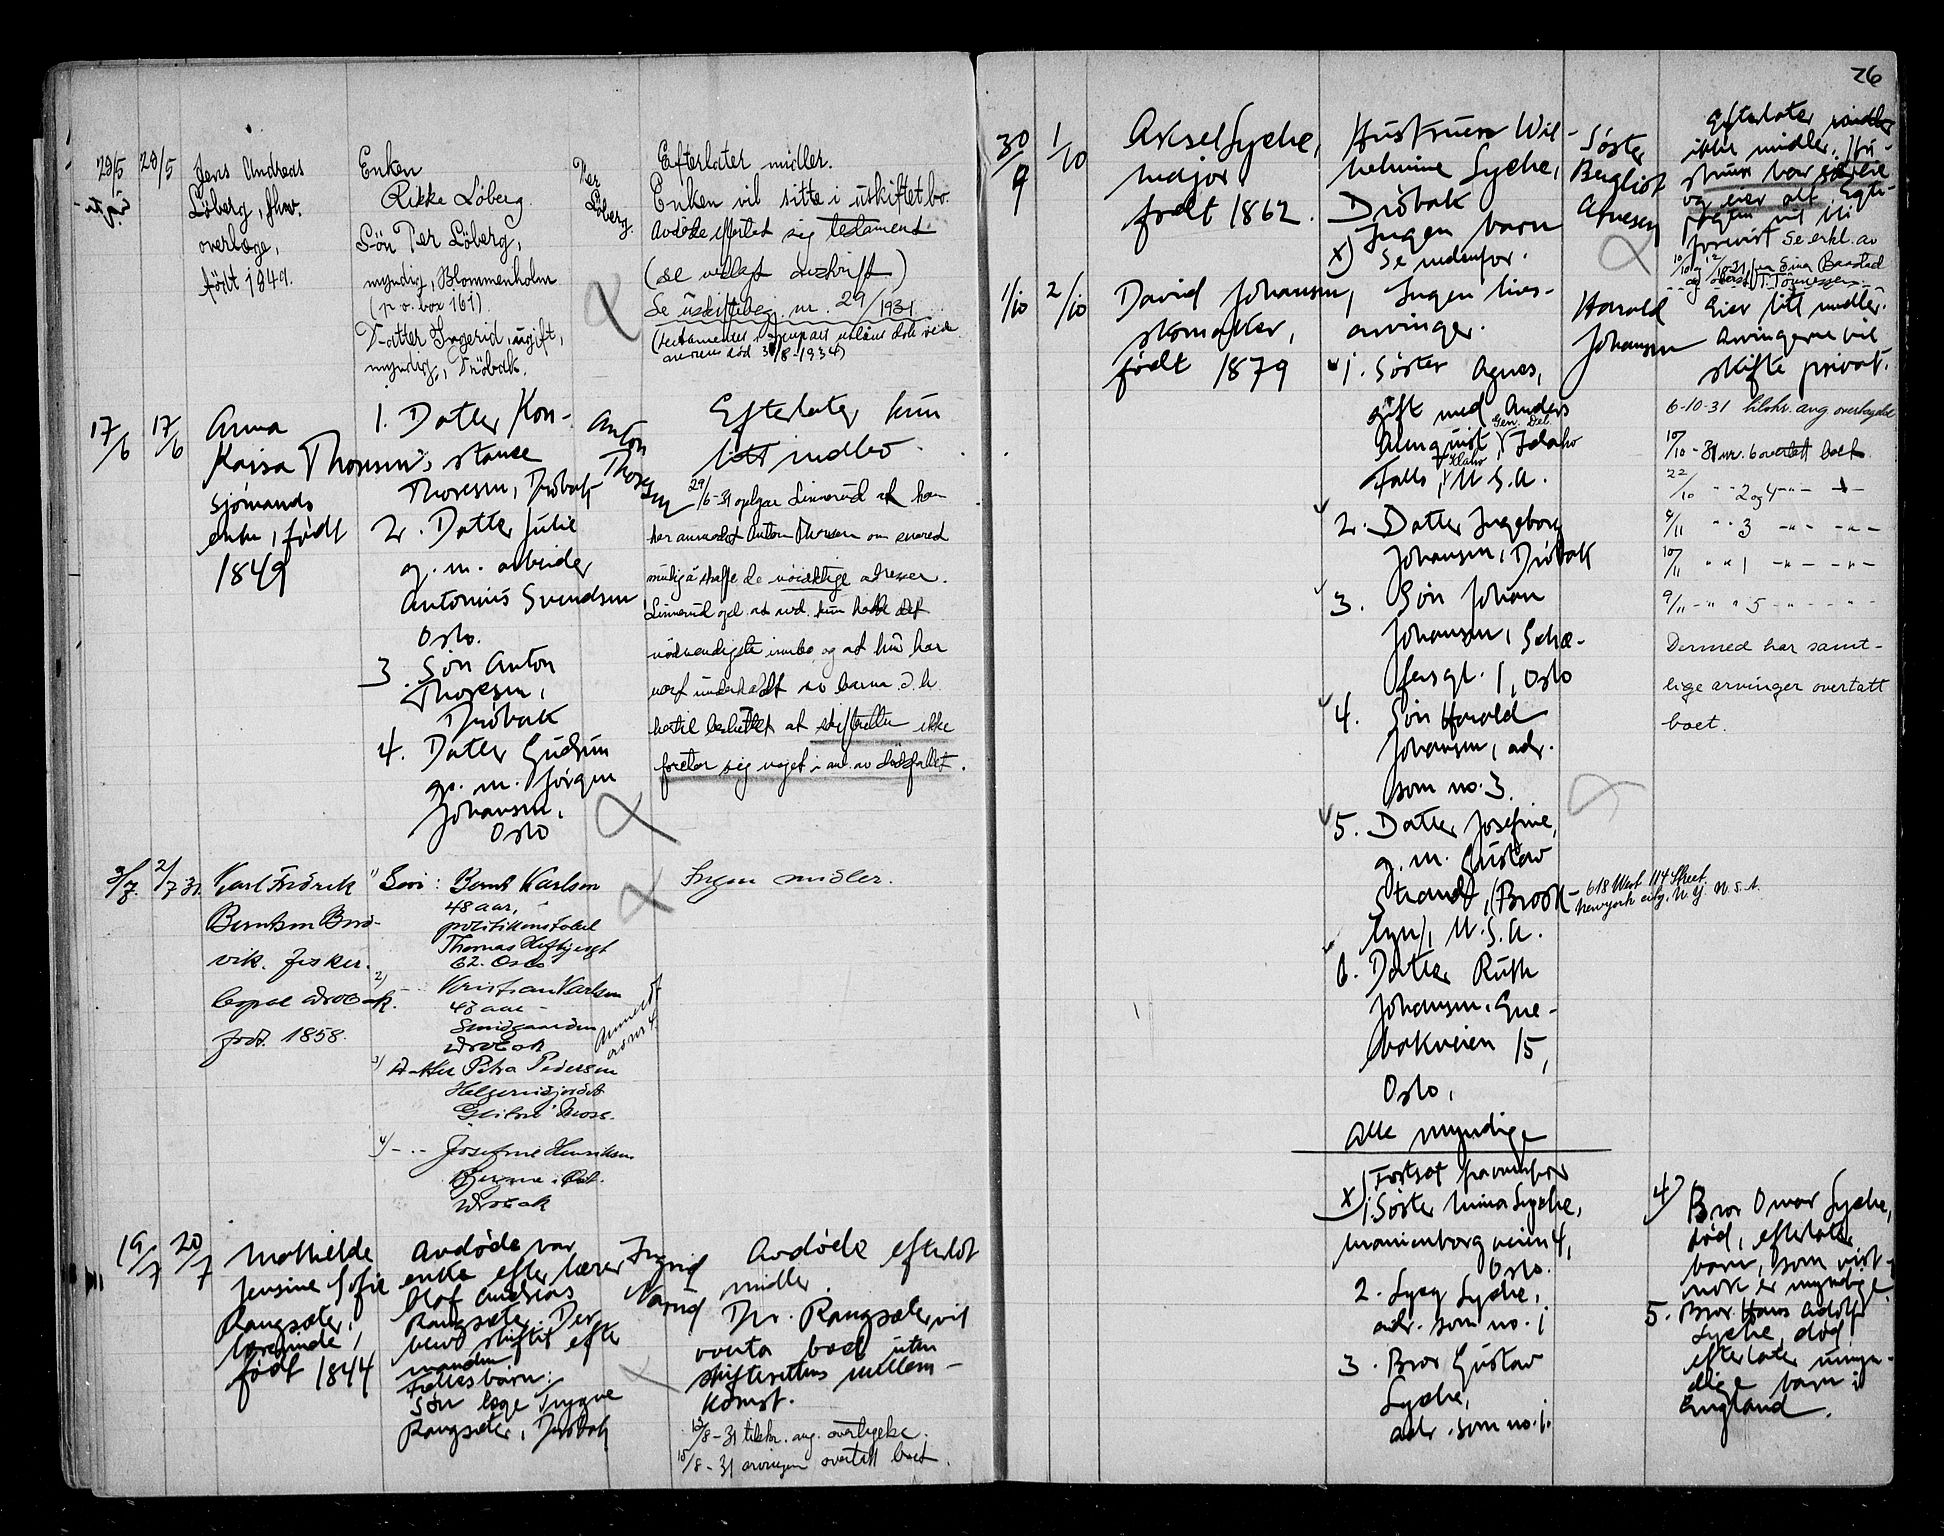 29/5 29/5 Jens Andreas
Löberg, fhv.
overlæge,
födt 1849.
Enken
Rikke Löberg
Sön Per Löberg,
myndig, Blommenholm
(p.o. box 161)
Datter Ingerid, ugift,
myndig, Dröbak.
Per
Löberg.
Efterlater midler.
Enken vil sitte i uskiftet bo.
Avdöde efterlot sig testament.
(se vedlagt avskrift)
Se uskiftebev. nr. 29/1931
17/6 17/6 Anna
Kaisa Thoresen,
sjömands
enke, födt
1849
1. Datter Kon-
stance
Thoresen, Dröbak
2. Datter Julie
g. m. arbeider
Antonius Svendsen
Oslo.
3. Sön Anton
Thoresen,
Dröbak
4. Datter Gudrun
g. m. Jörgen
Johansen,
Oslo
Anton
Thoresen
Efterlater kun
litt indbo.
29/6-31 oplyser Linnerud at han
har anmodet Anton Thoresen om snarest
mulig å skaffe de nöiaktige adresser.
Linnerud opl. at avd. kun hadde det
nödvendigste innbo og at hun har
vært underholdt av barna. D. h.
hertil besluttet at skifteretten ikke
foretar sig noget i anl. av dödsfallet.
3/7 2/7 31. Karl Fredrik
Berntsen Bred-
vik. fisker.
bopæl Drobak.
fød. 1858.
1) Søn: Bernt Karlsen
48 aar,
politikonstabel
Thomas Heftyesgt
62. Oslo
2) Kristian Karlsen
43 aar -
Smidgaarden
Drobak
3) Datter Petra Pedersen
Helgerødjordet
Moss.
4) - .. Josefine Henriksen
Drobak
Anmeldt
av no 4.
Ingen midler.
19/7 20/7 Mathilde
Jensine Sofie
Rangsæter,
lærerinde,
födt 1844
Avdöde var
enke efter lærer
Olaf Andreas
Rangsæter. Der
blev skiftet efter
manden
Fællesbarn:
Sön læge Trygve
Rangsæter, Dröbak
Ingrid
Narud
Avdöde efterlot
midler.
Dr. Rangsæter vil
overta boet uten
skifterettens mellem-
komst.
13/8-31 tilskr. ang. overtagelse.
15/8-31 arvingen overtatt boet.
26
30/9 1/10 Aksel Lyche,
major,
født 1862.
Hustruen Wil-
helmine Lyche,
Dröbak
Ingen barn
x) Se nedenfor.
Söster
Bergliot
Arnesen
Efterlater
ikke midler. Hu-
struen har særeie
og eier alt.
Se erkl. av
1/10 2/10 David Johansen,
skomaker,
födt 1879
Ingen livs-
arvinger.
1. Söster Agnes,
gift med Anders
Almquist, Gen. Del. Idaho
Falls, Idaho U.S.A.
2. Datter Ingeborg
Johansen, Dröbak
3. Sön Johan
Johansen, Schæ-
fersgt. 1, Oslo
4. Sön Harald
Johansen, adr.
som no. 3.
5. Datter Josefine,
g. m. Gustav
Strandt, (Brook-
lyn), U.S.A.
618 West 114 Street
Newyork city, N.Y. U.S.A.
6. Datter Ruth
Johansen, Gre-
bakveien 15,
Oslo,
Alle myndige
Harald
Johansen
Eier litt midler.
Arvingerne vil
skifte privat.
6-10-31 tilskr. ang. overtagelse
10/10-31 nr. 6 overtatt boet
22/10 " " 2 og 4 -"- -"-
9/11 " " 3 -"- -"-
10/11 " " 1 -"- -"-
9/11 -" " 5 -"- -"-
Dermed har samt-
lige arvinger overtatt
boet.
x) Fortsat fra ovenfor
1. Söster Mina Lyche,
Marienborgveien 4,
Oslo.
2. Lyche,
adr. som no. 1
3. Bror Gustav
Lyche,
adr. som no. 1.
4) Bror Omar Lyche,
död, efterlater
barn, som vist-
nok er myndige
5. Bror Hans Adolf
Lyche, död,
efterlater umyn-
dige barn i
England.